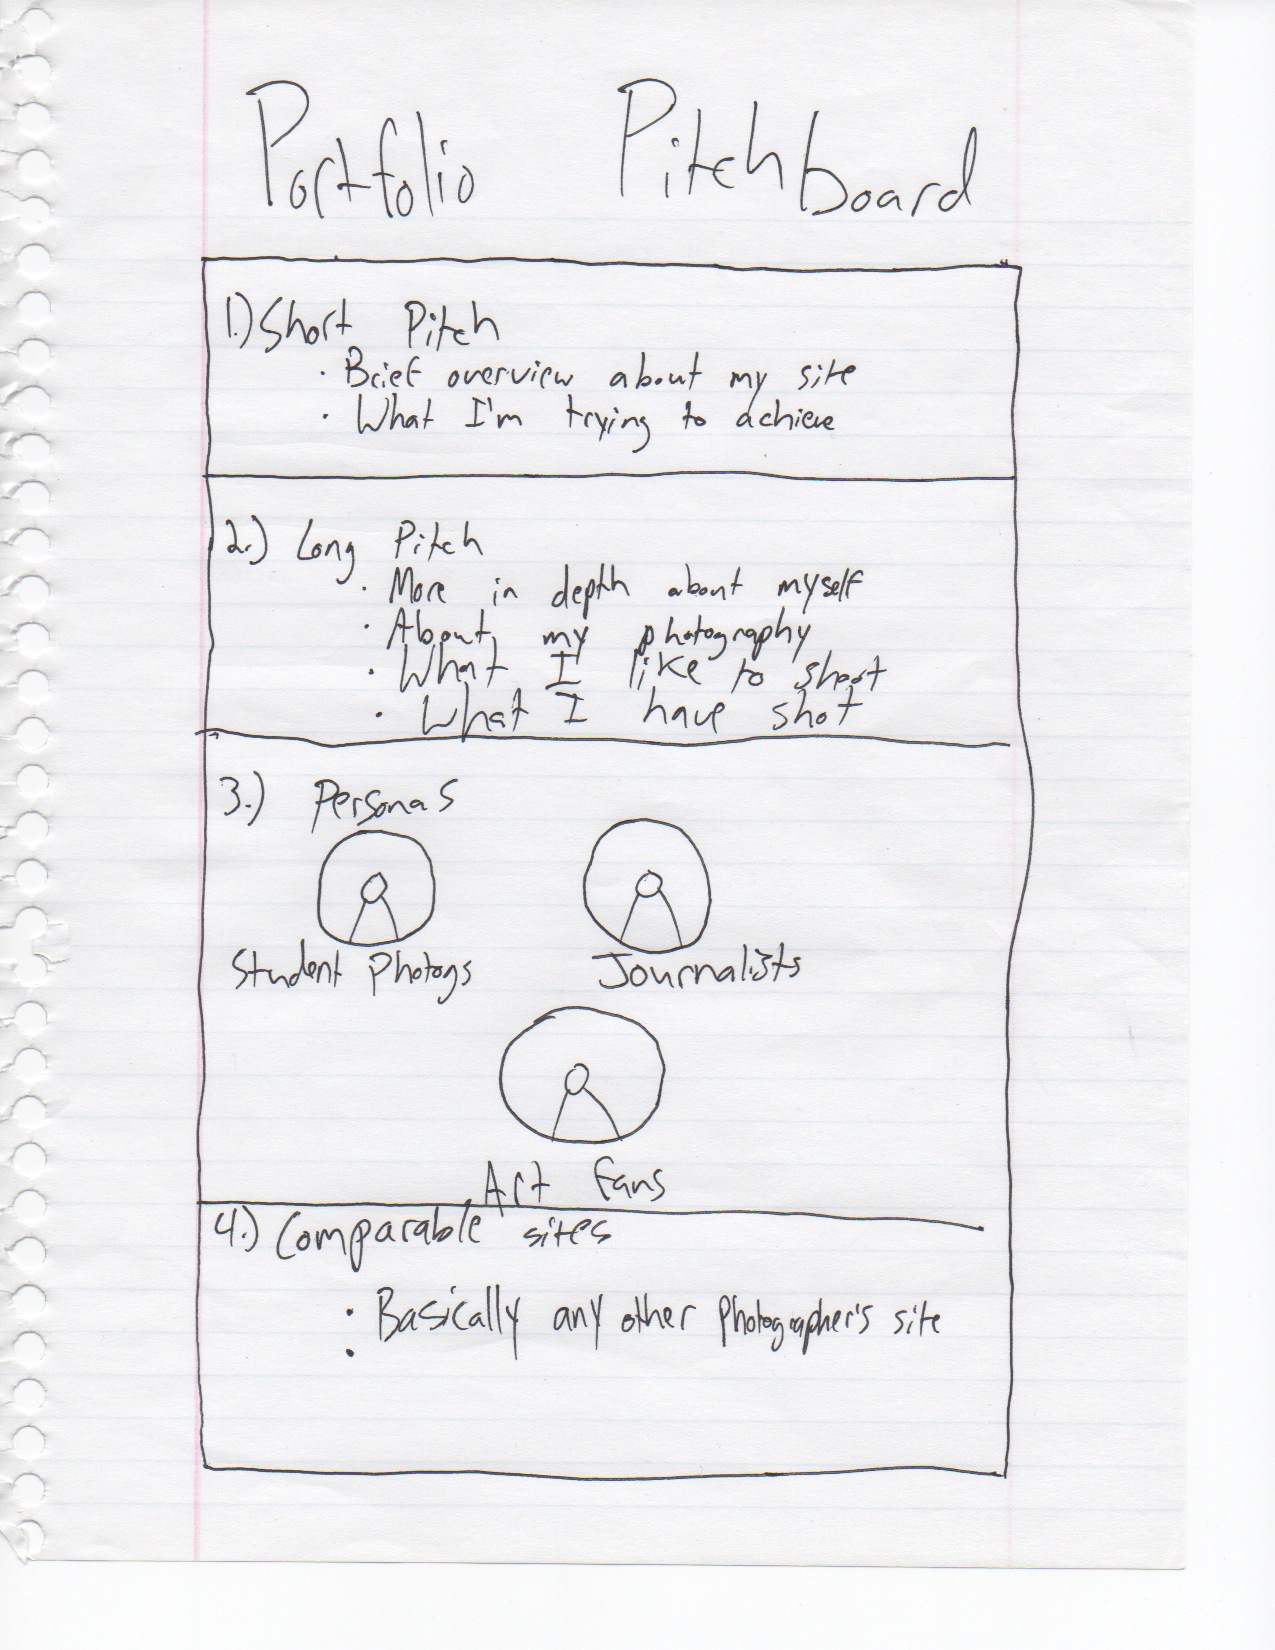 Portfolio Pitchboard
1.) Short Pitch
· Brief overview about my site
· What I'm trying to achieve
2.) Long Pitch
· More in depth about myself
· About my photography
· What I like to shoot
· What I have shot
3.) Personas
Student Photogs Journalists
Art Fans
4.) Comparable sites
· Basically any other photographer's site
·